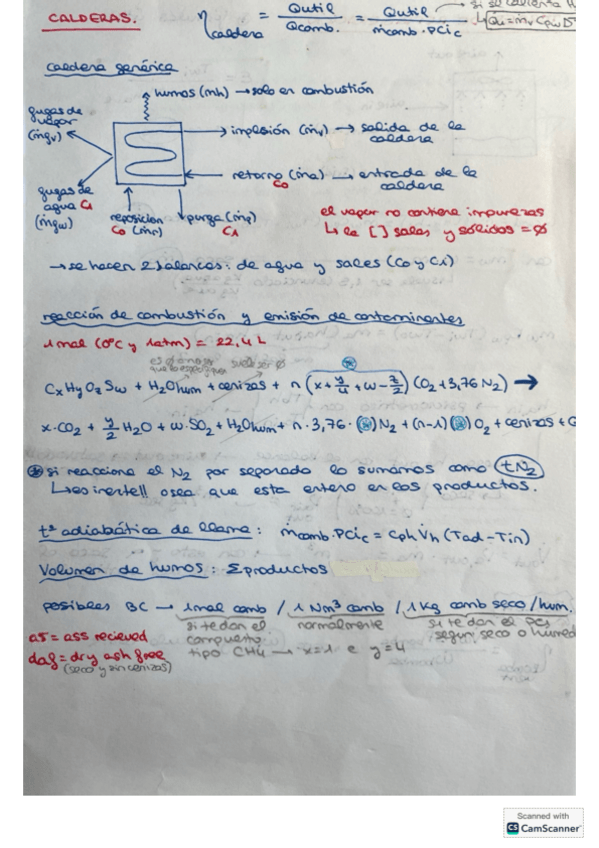 CALDERAS.
η caldera = Qutil / Qcomb. = Qutil / ṁcomb·PCi c
si se calienta H
Qu=ṁv Cpw D
caldera genérica
humos (mh) → solo en combustión
fugas de vapor (ṁgv)
impulsión (ṁv) → salida de la caldera
retorno (ṁa) → entrada de la caldera
Co
fugas de agua C1 (ṁgw)
reposición Co (ṁr)
purga (ṁp) C1
el vapor no contiene impurezas
↳ la [] sales y sólidos = ∅
→ se hacen 2 balances: de agua y sales (Co y C1)
reacción de combustión y emisión de contaminantes
1 mol (0ºC y 1atm) = 22,4 L
es 0 a no ser que lo especifique
suele ser ∅
CxHyOzSw + H2Ohum + cenizas + n (x+y/4+w-z/2) (O2+3,76 N2) →
x·CO2 + y/2 H2O + w·SO2 + H2Ohum + n·3,76·(*)N2 + (n-1)(*)O2 + cenizas +
* si reacciona el N2 por separado lo sumamos como tN2
↳ es inerte!! osea que esta entero en los productos.
tª adiabática de llama: ṁcomb·PCic = Cph V̇h (Tad-Tin)
Volumen de humos: Σproductos
posibles BC → 1 mol comb / 1 Nm³ comb / 1 Kg comb seco/hum.
si te dan el compuesto tipo CH4 → x=1 e y=4
normalmente
si te dan el PCi según seco o humed
as = ass recieved
daf = dry ash free
(seco y sin cenizas)
Scanned with
CS CamScanner